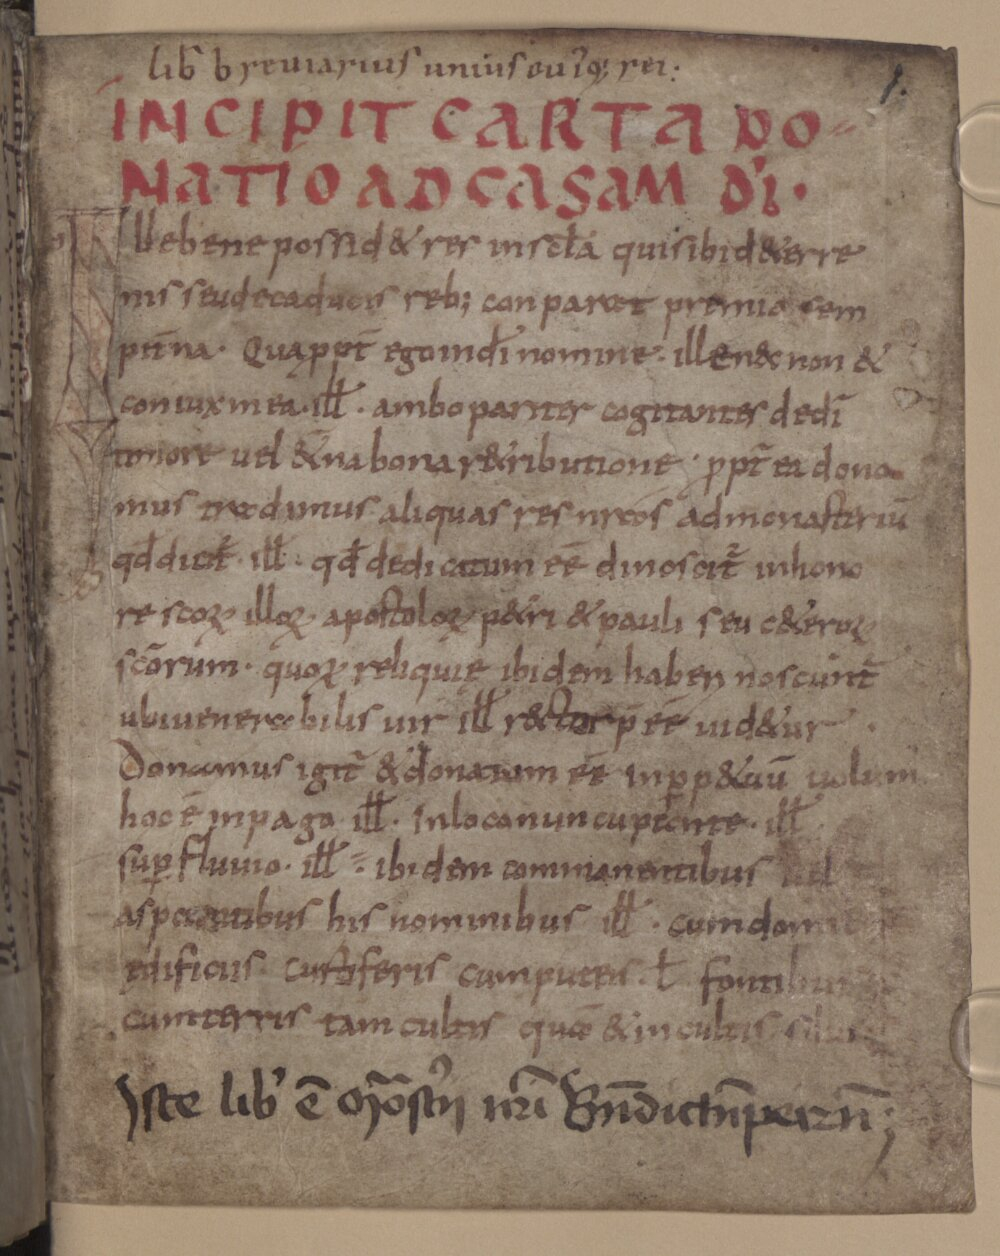 lib breviarius unius cuiꝰq; rei:
1.
INCIPIT CARTA DO
NATIO AD CASAM DI·
Ille bene possid& res in sc̄l̄a qui sibi d& erre
nis seu de caducis reb; conparat premia sem
pit̄na· Quapropt̄ ego in dī nomine· ill en& non &
coniux mea· ill̄· ambo pariter cogitantes de dī
timore vel &̄na bona r&ributione· ꝓpt̄ ea dona
mus tradimus aliquas res nr̄as ad monasteriū
qd̄ dicit̄· ill̄· qd̄ dedicatum eē dinoscit̄ in hono
re scōꝝ illoꝝ· apostoloꝝ p&ri & pauli seu c&eroꝝ
scōrum· quoꝝ reliquie ibidem haberi noscunt̄
ubi venerabilis vir ill̄ rector p eē vid&ur
Donamus igit̄ & donatum eē in ꝑp&uū volum
hoc ē in pago ill̄· In loca nuncupante· ill̄
suꝑ fluvio· ill̄· ibidem commanentibus vel
aspectantibus his nominibus ill̄· cum dom
edificiis curtiferis cum puteis· ł fontibus
cum terris tam cultis quā & incultis silvis
Iste lib' ē Mōast'ii nr̄i Bn̄dictn̄pewrn̄;